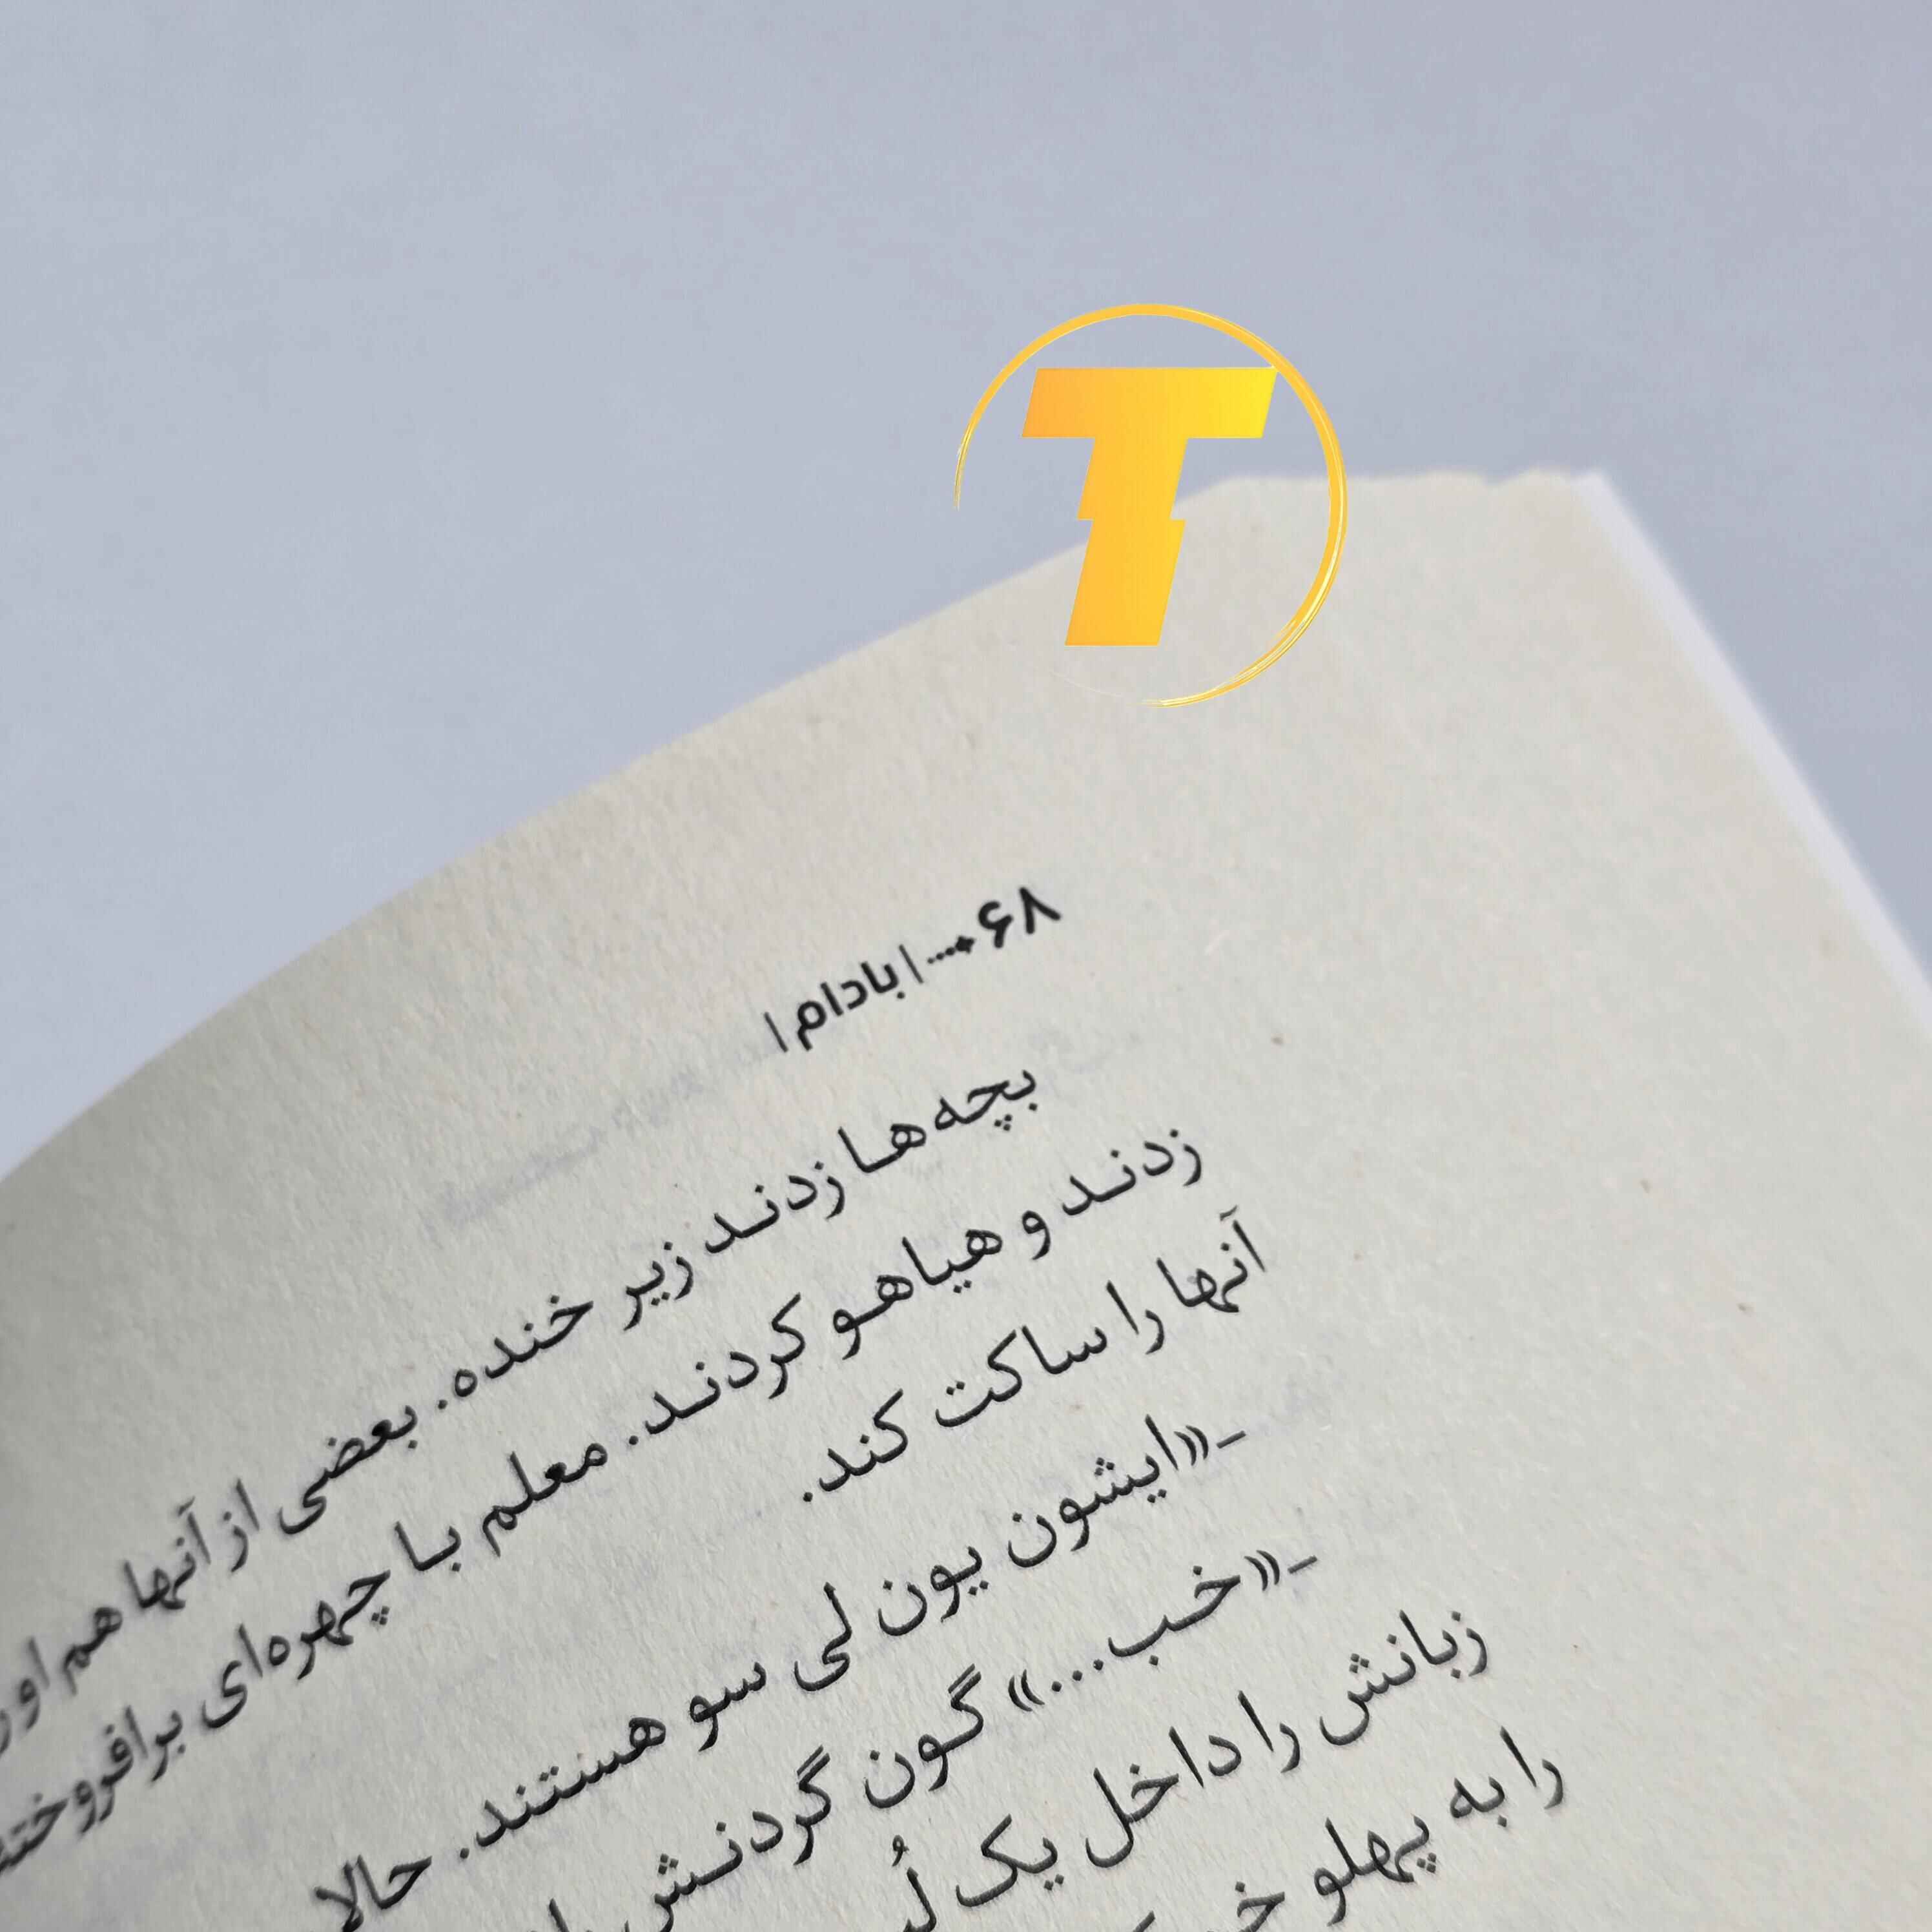 T
۶۸ ····• | بادام |
بچه‌ها زدند زیر خنده. بعضی از آنها هم
زدند و هیاهو کردند. معلم با چهره‌ای برافروخته
آنها را ساکت کند.
ـ«ایشون یون لی سو هستند. حالا
ـ«خب...» گون گردنش
زبانش را داخل یک
را به پهلو